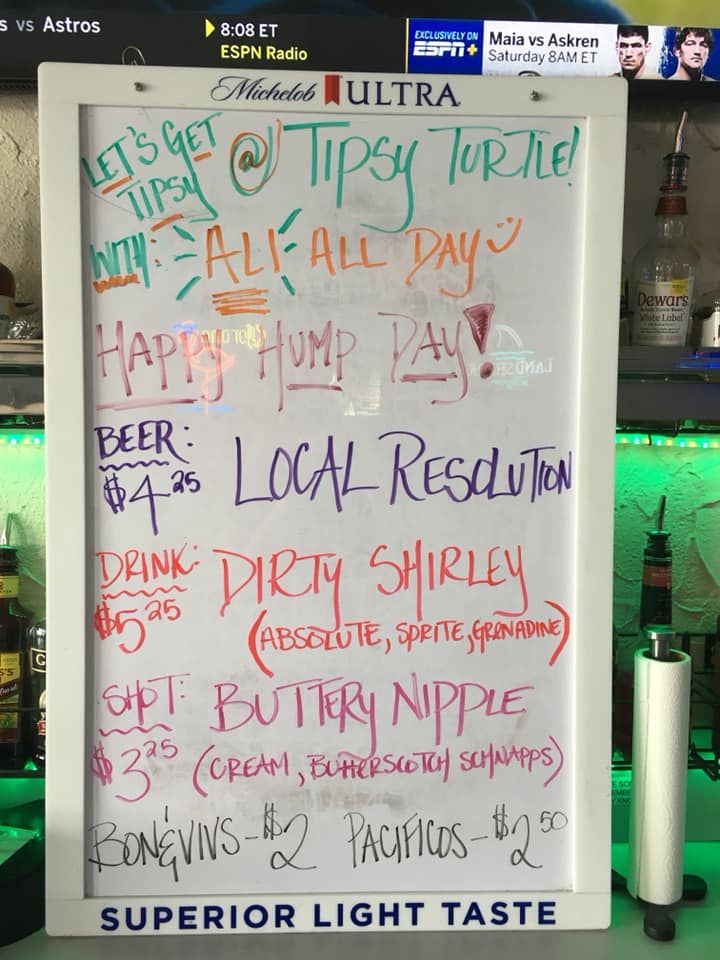 s vs Astros
8:08 ET
ESPN Radio
EXCLUSIVELY ON
ESPN+
Maia vs Askren
Saturday 8AM ET
Michelob ULTRA
LET'S GET
TIPSY @ TIPSY TURTLE!
WITH: ALI ALL DAY
HAPPY HUMP DAY!
BEER:
$4.25 LOCAL RESOLUTION
DRINK: DIRTY SHIRLEY
$5.25 (ABSOLUTE, SPRITE, GRENADINE)
SHOT: BUTTERY NIPPLE
$3.25 (CREAM, BUTTERSCOTCH SCHNAPPS)
BON&VIVS - $2 PACIFICOS - $2.50
SUPERIOR LIGHT TASTE
Dewar's
White Label
LANDSHARK